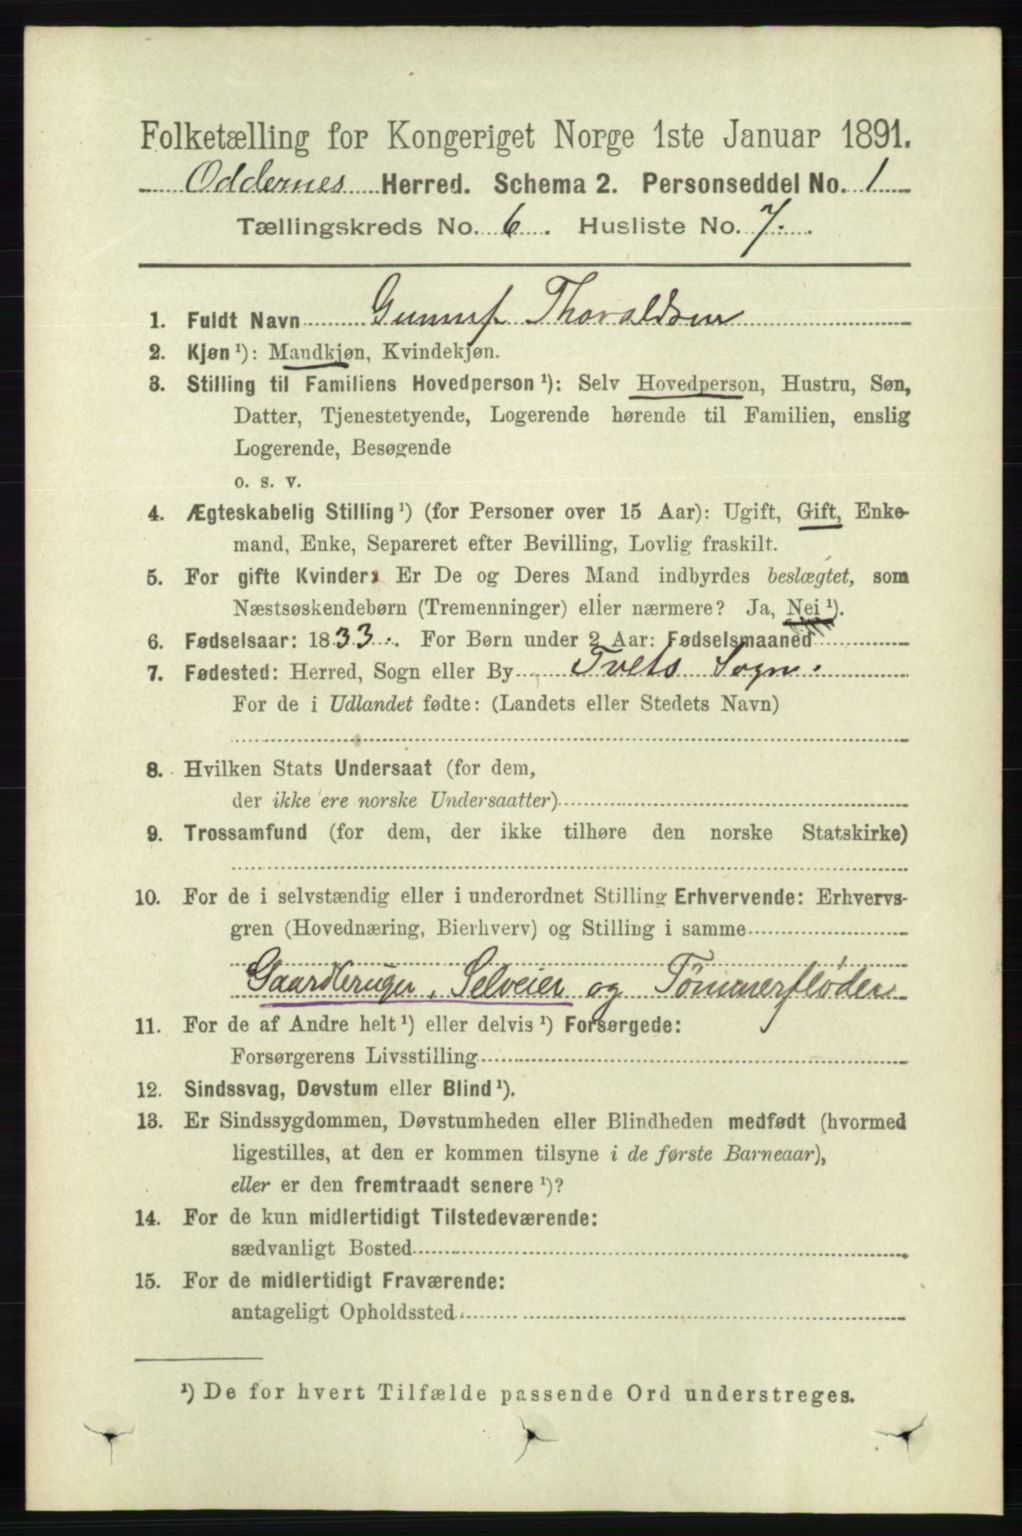 Folketælling for Kongeriget Norge 1ste Januar 1891.
Oddernes Herred. Schema 2. Personseddel No. 1
Tællingskreds No. 6. Husliste No. 7.
1. Fuldt Navn Gunnuf Thoraldsen
2. Kjøn ¹): Mandkjøn, Kvindekjøn.
3. Stilling til Familiens Hovedperson ¹): Selv Hovedperson, Hustru, Søn,
Datter, Tjenestetyende, Logerende hørende til Familien, enslig
Logerende, Besøgende
o. s. v.
4. Ægteskabelig Stilling ¹) (for Personer over 15 Aar): Ugift, Gift, Enke-
mand, Enke, Separeret efter Bevilling, Lovlig fraskilt.
5. For gifte Kvinder: Er De og Deres Mand indbyrdes beslægtet, som
Næstsøskendebørn (Tremenninger) eller nærmere? Ja, Nei ¹).
6. Fødselsaar: 1833. For Børn under 2 Aar: Fødselsmaaned
7. Fødested: Herred, Sogn eller By Tvets Sogn.
For de i Udlandet fødte: (Landets eller Stedets Navn)
8. Hvilken Stats Undersaat (for dem,
der ikke ere norske Undersaatter)
9. Trossamfund (for dem, der ikke tilhøre den norske Statskirke)
10. For de i selvstændig eller i underordnet Stilling Erhvervende: Erhvervs-
gren (Hovednæring, Bierhverv) og Stilling i samme
Gaardbruger, Selveier og Tømmerfløder
11. For de af Andre helt ¹) eller delvis ¹) Forsørgede:
Forsørgerens Livsstilling
12. Sindssvag, Døvstum eller Blind ¹).
13. Er Sindssygdommen, Døvstumheden eller Blindheden medfødt (hvormed
ligestilles, at den er kommen tilsyne i de første Barneaar),
eller er den fremtraadt senere ¹)?
14. For de kun midlertidigt Tilstedeværende:
sædvanligt Bosted
15. For de midlertidigt Fraværende:
antageligt Opholdssted
¹) De for hvert Tilfælde passende Ord understreges.